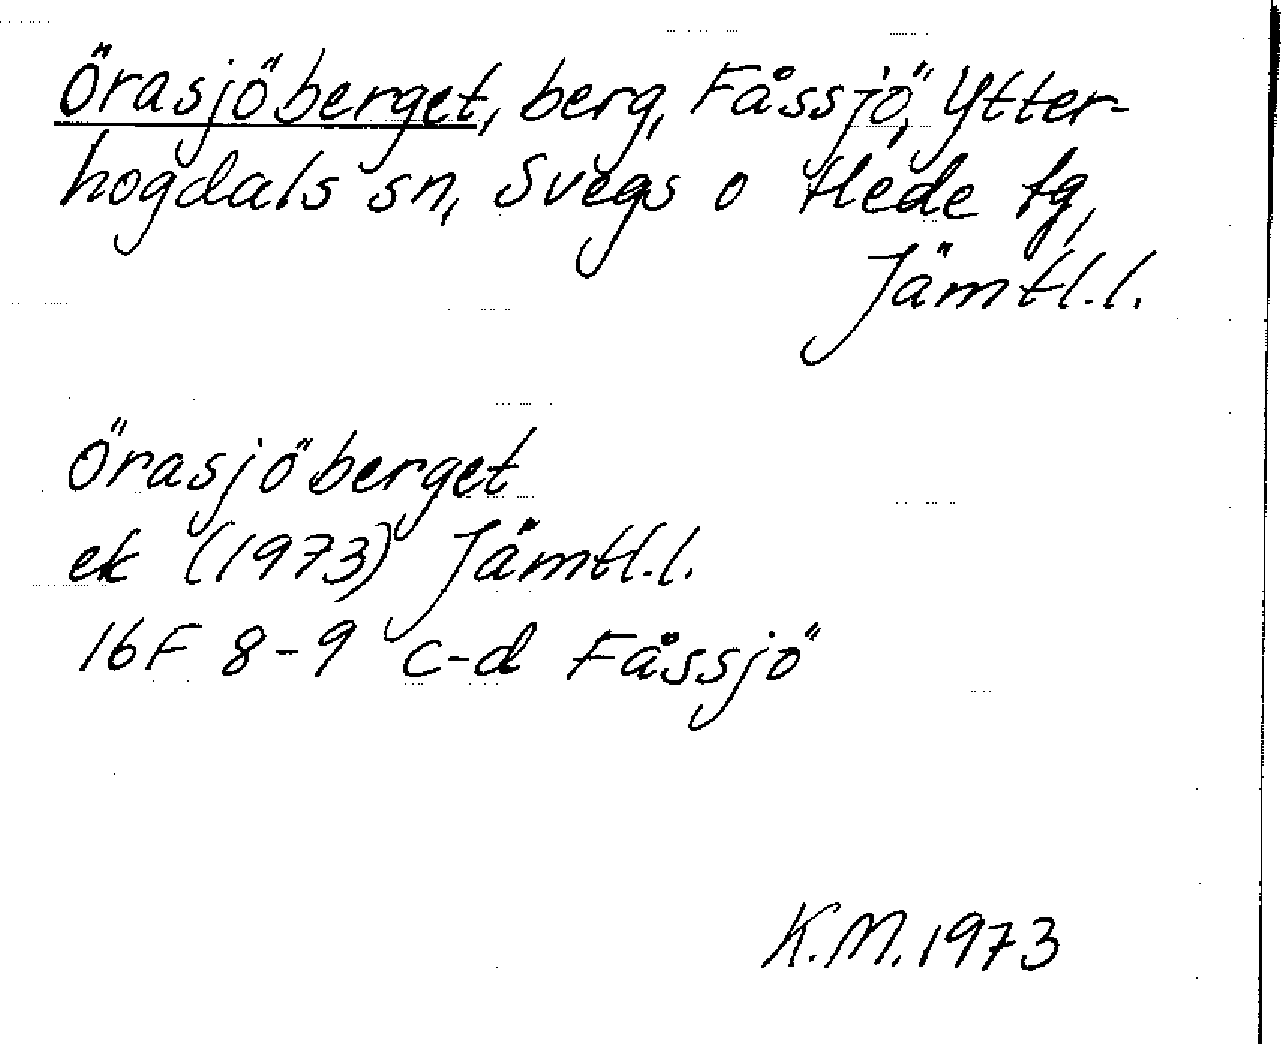 Örasjöberget, berg, Fåssjö, Ytter-
hogdals sn, Svegs o Hede tg,
Jämtl.l.
Örasjöberget
ek (1973) Jämtl.l.
16F 8-9 c-d Fåssjö
K.M. 1973